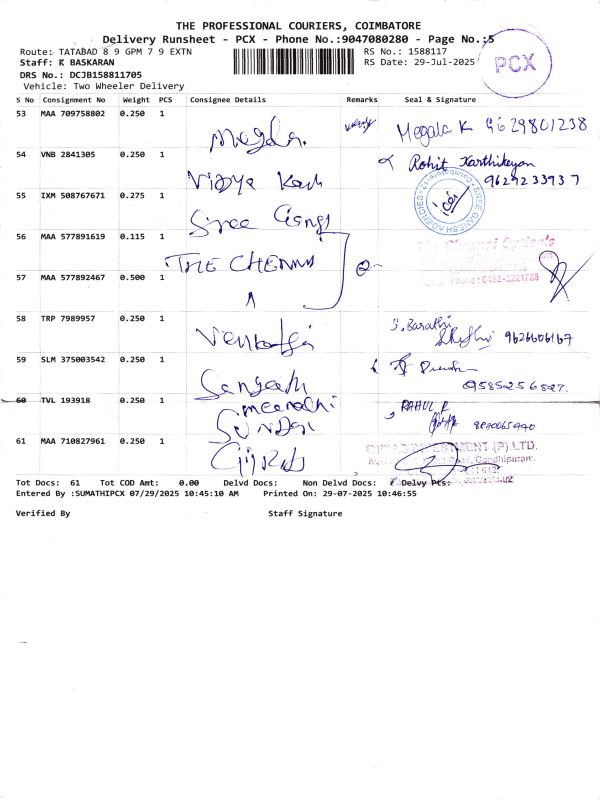 THE PROFESSIONAL COURIERS, COIMBATORE
Delivery Runsheet - PCX - Phone No.:9047080280 - Page No.:5
Route: TATABAD 8 9 GPM 7 9 EXTN
RS No.: 1588117
Staff: K BASKARAN
RS Date: 29-Jul-2025
PCX
DRS No.: DCJB158811705
Vehicle: Two Wheeler Delivery
S No Consignment No Weight PCS Consignee Details Remarks Seal & Signature
53 MAA 709758802 0.250 1 Megala K 9629801238
54 VNB 2841305 0.250 1 Vidya Rohit Karthikeyan
9629233937
55 IXM 508767671 0.275 1 Sree SREE GANESH AGENCIES
56 MAA 577891619 0.115 1 THE CHENNAI
57 MAA 577892467 0.500 1 Phone: 0422-
58 TRP 7989957 0.250 1 S. Barathi
9626606167
59 SLM 375003542 0.250 1 Sangeeth
9585256827.
60 TVL 193918 0.250 1 meenachi Sundar RAHUL P
61 MAA 710827961 0.250 1 (P) LTD.
Gandhipuram,
Tot Docs: 61 Tot COD Amt: 0.00 Delvd Docs: Non Delvd Docs: Delvy Pts:
Entered By :SUMATHIPCX 07/29/2025 10:45:10 AM Printed On: 29-07-2025 10:46:55
Verified By Staff Signature